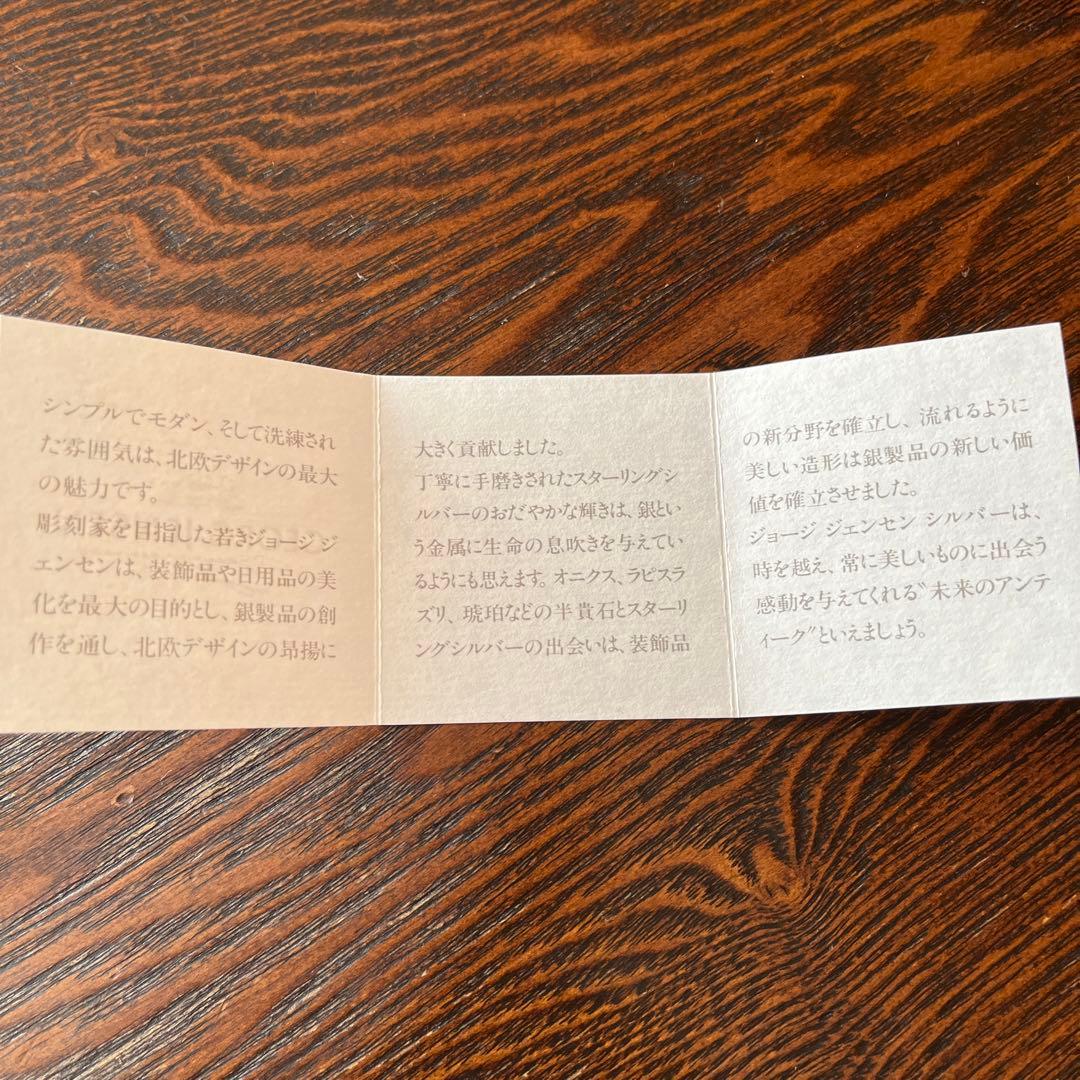 シンプルでモダン、そして洗練され
た雰囲気は、北欧デザインの最大
の魅力です。
彫刻家を目指した若きジョージ ジ
ェンセンは、装飾品や日用品の美
化を最大の目的とし、銀製品の創
作を通し、北欧デザインの昂揚に
大きく貢献しました。
丁寧に手磨きされたスターリングシ
ルバーのおだやかな輝きは、銀とい
う金属に生命の息吹きを与えてい
るようにも思えます。オニクス、ラピスラ
ズリ、琥珀などの半貴石とスターリ
ングシルバーの出会いは、装飾品
の新分野を確立し、流れるように
美しい造形は銀製品の新しい価
値を確立させました。
ジョージ ジェンセン シルバーは、
時を越え、常に美しいものに出会う
感動を与えてくれる〝未来のアンテ
ィーク〞といえましょう。